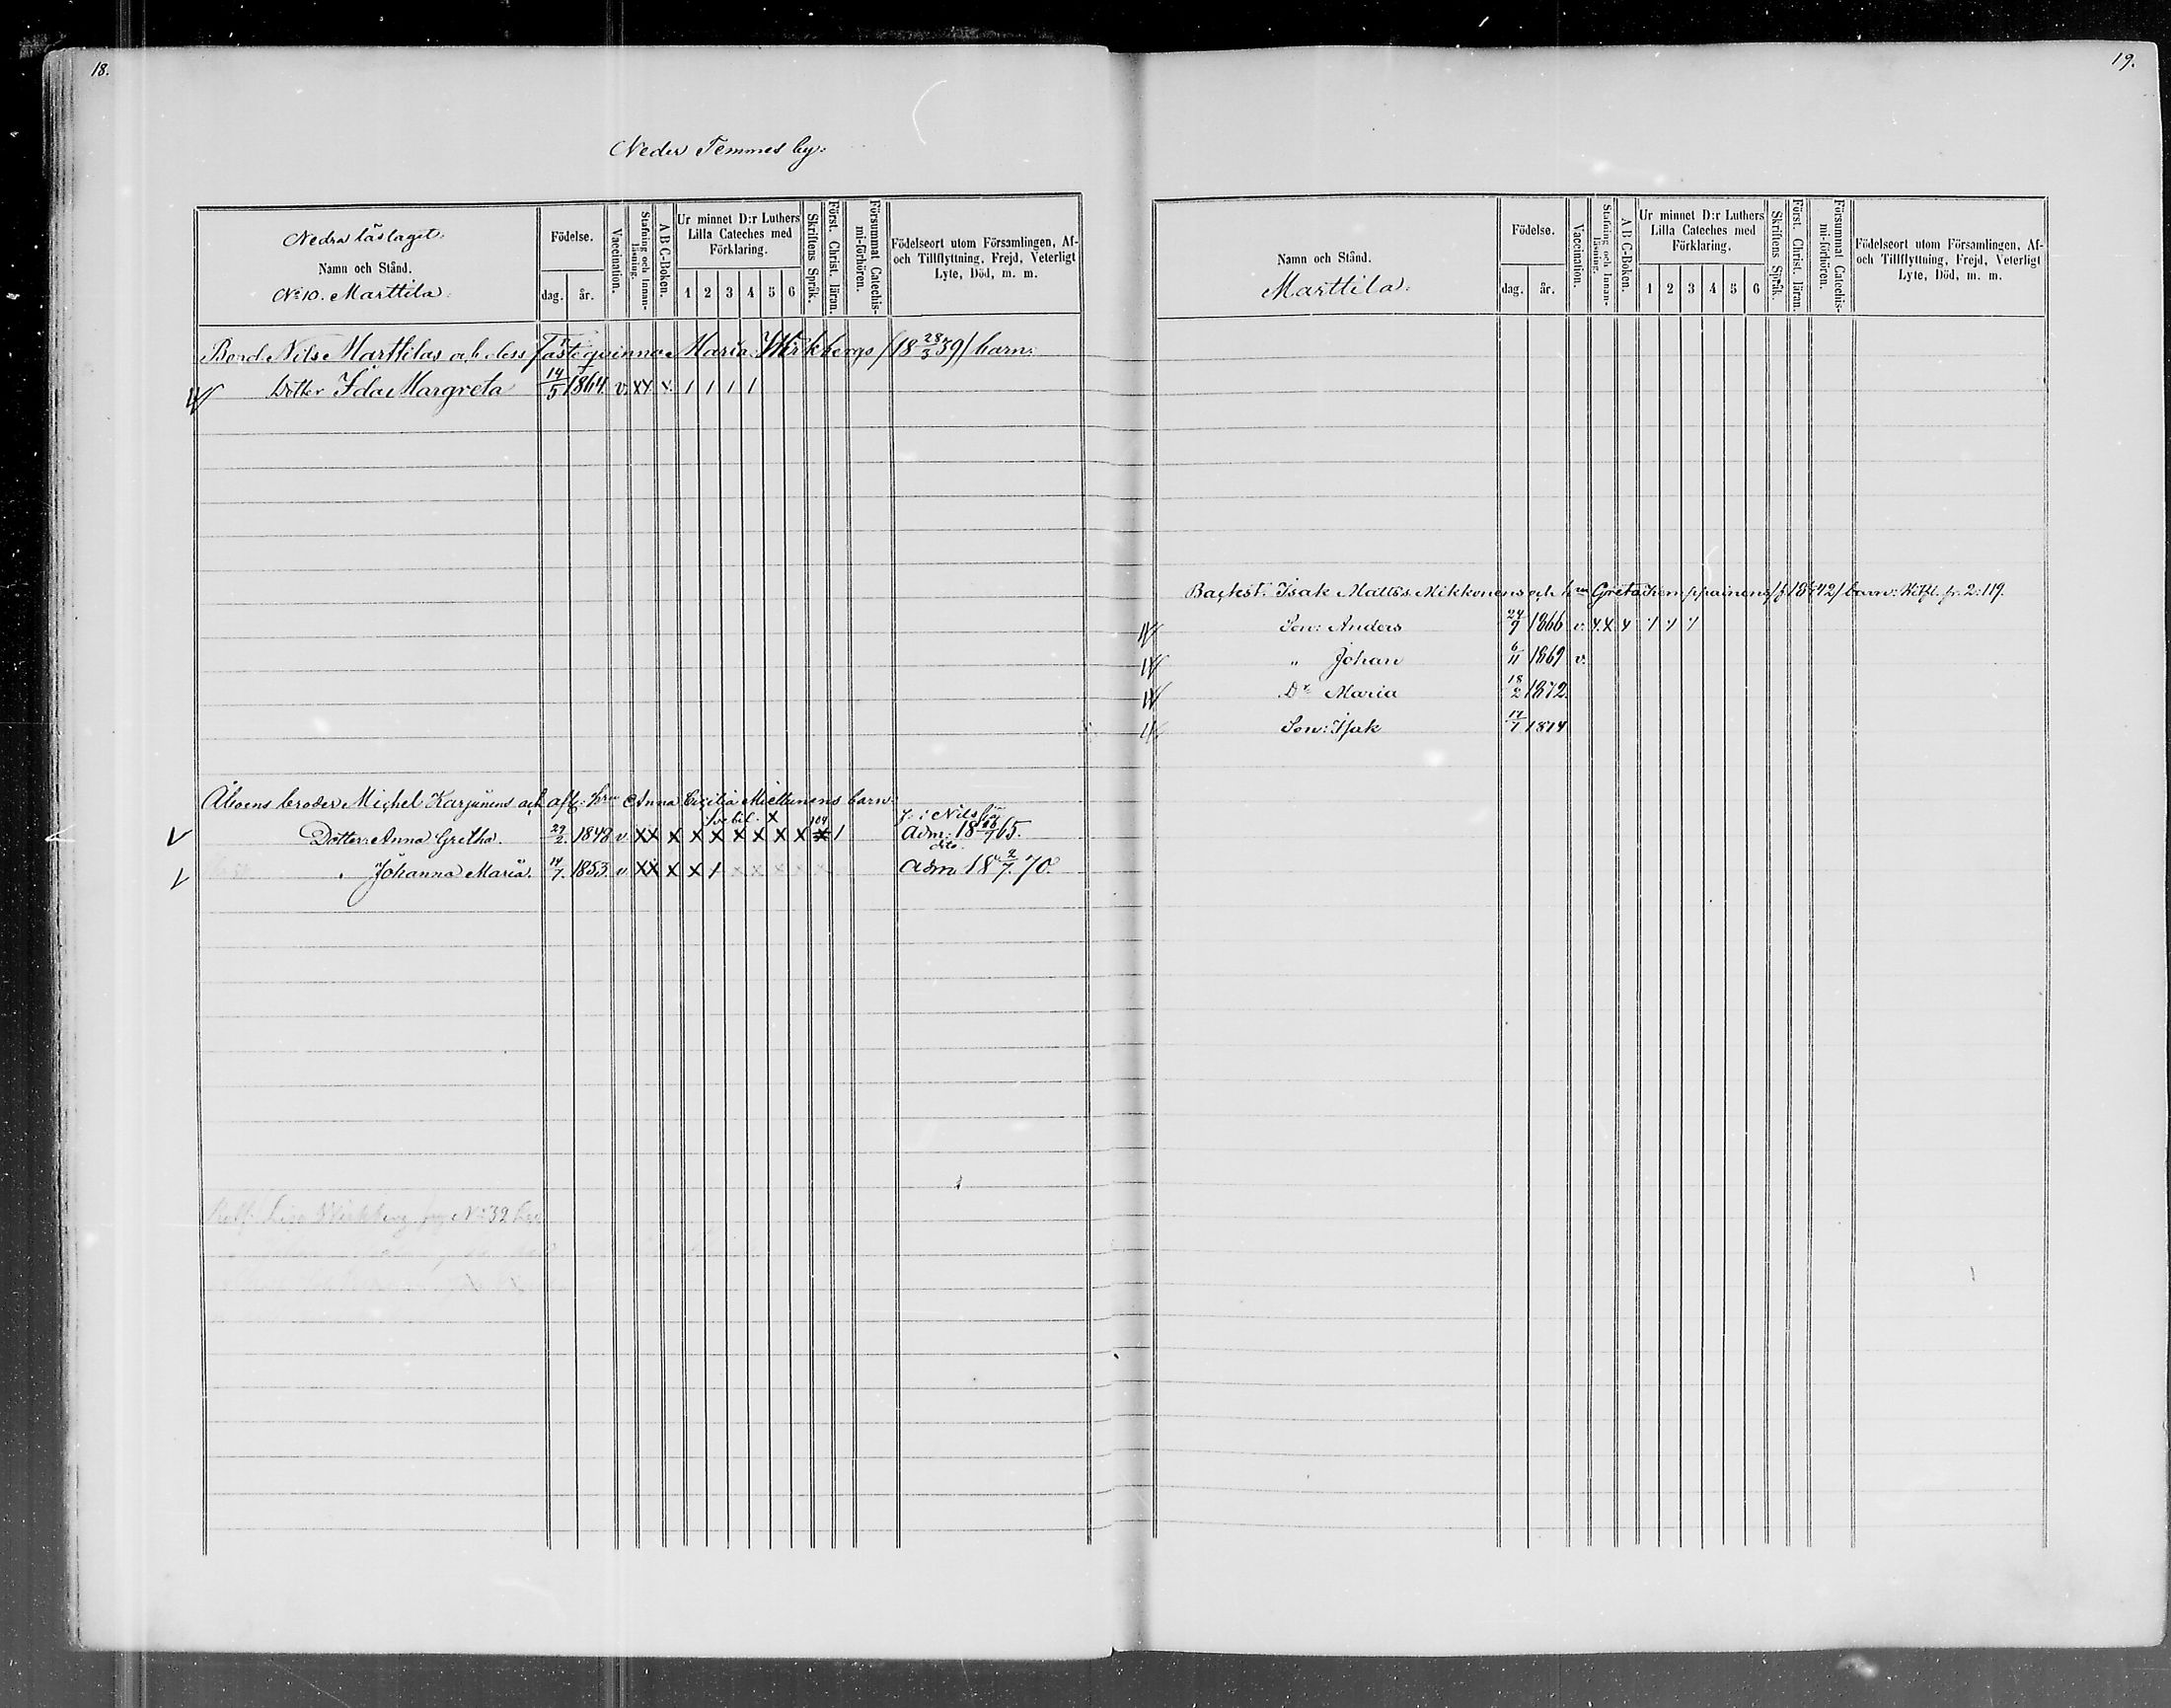 18.
Neder Temmes by:
Nedra läslaget.
Namn och Stånd.
No 10. Marttila.
Födelse.
dag. år.
Vaccination.
Stafning och Innan-läsning.
A B C-Boken.
Ur minnet D:r Luthers Lilla Cateches med Förklaring.
1 2 3 4 5 6
Skriftens Språk.
Först. Christ. läran.
Försummat Catechis-mi-förhören.
Födelseort utom Församlingen, Af-
och Tillflyttning, Frejd, Veterligt
Lyte, Död, m. m.
Bond. Nils Marttilas och dess fästeqvinna Maria Wirkbergs /18 28/3 39/ barn:
Dotter Ida Margreta 14/5 1864. v. XX 1 1 1 1
Åboens broder Michel Karjunens och afl. hru Anna Cecilia Miettunens barn
f. i Nilsiä
Dotter Anna Gretha. 29/2. 1848 v XX X X X X X X X 1 Adm. 18 /7 65.
dito.
Johanna Maria. 14/7. 1853. v XX X X 1 Adm. 18 2/7. 70.
Lisa Wirkberg No 32
19.
Namn och Stånd.
Marttila.
Födelse.
dag. år.
Vaccination.
Stafning och Innan-läsning.
A B C-Boken.
Ur minnet D:r Luthers Lilla Cateches med Förklaring.
1 2 3 4 5 6
Skriftens Språk.
Först. Christ. läran.
Försummat Catechis-mi-förhören.
Födelseort utom Församlingen, Af-
och Tillflyttning, Frejd, Veterligt
Lyte, Död, m. m.
Backst. Isak Mattss. Mikkonens och hru Greta Kemppainens barn: fr. 2: 119.
Son: Anders 24/9 1866 v.
" Johan 6/11 1869 v.
Dr Maria 18/2 1872.
Son: Isak 1874